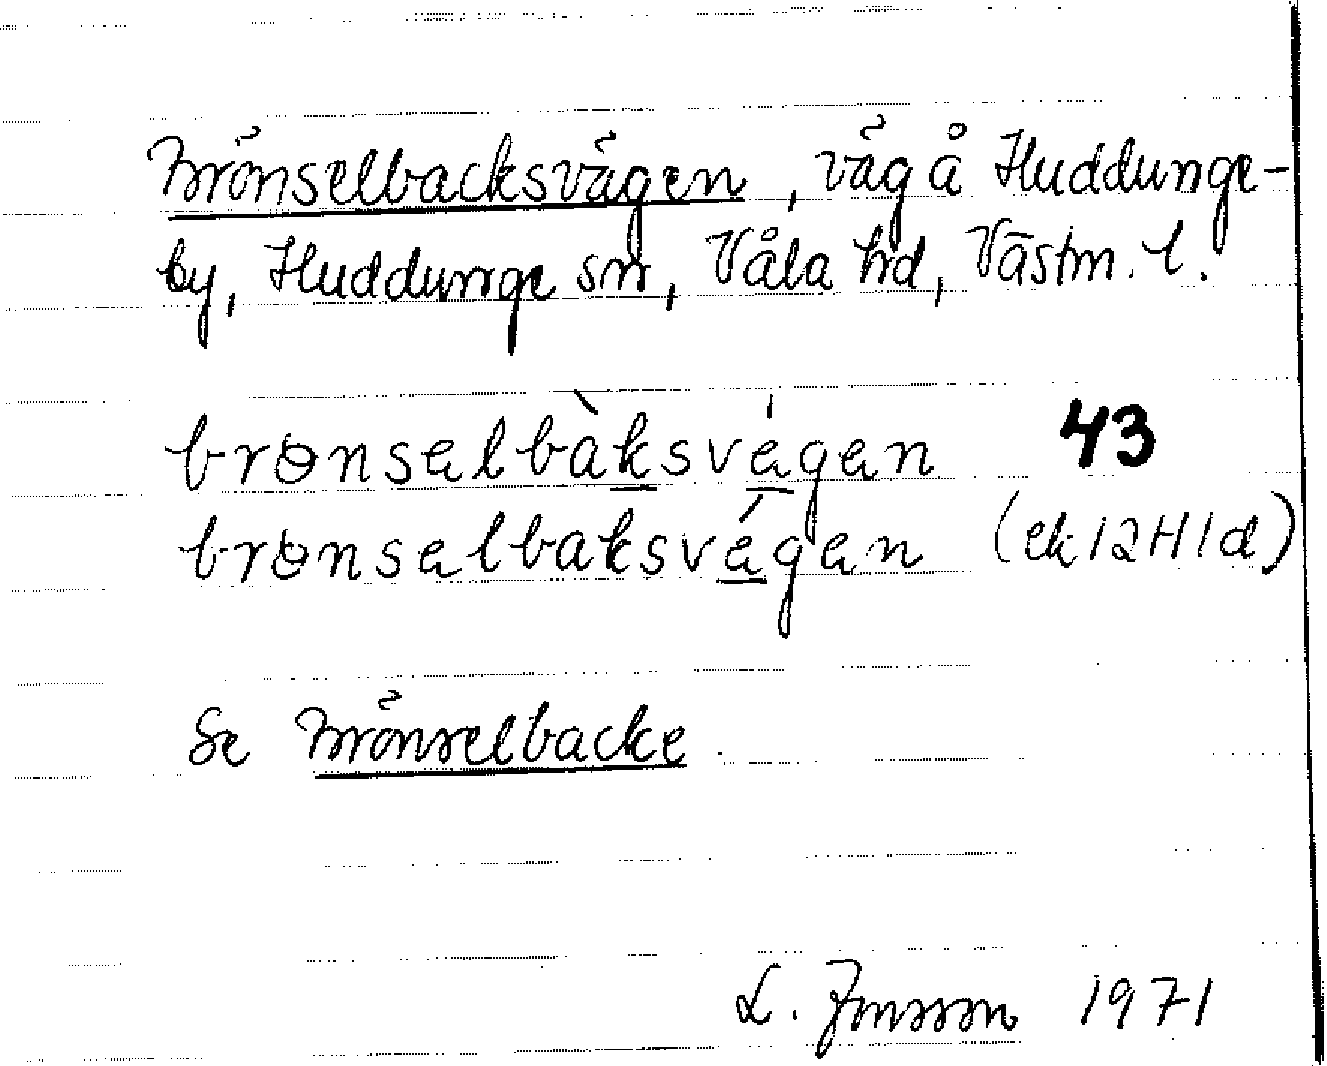 Brönselbacksvägen, väg å Huddunge-
by, Huddunge sn, Våla hd, Västm. l.
brɵnsəlbàksvégən 43
brɵnsəlbaksvégən (ek 12H1d)
Se Brönselbacke
L. Jonsson 1971